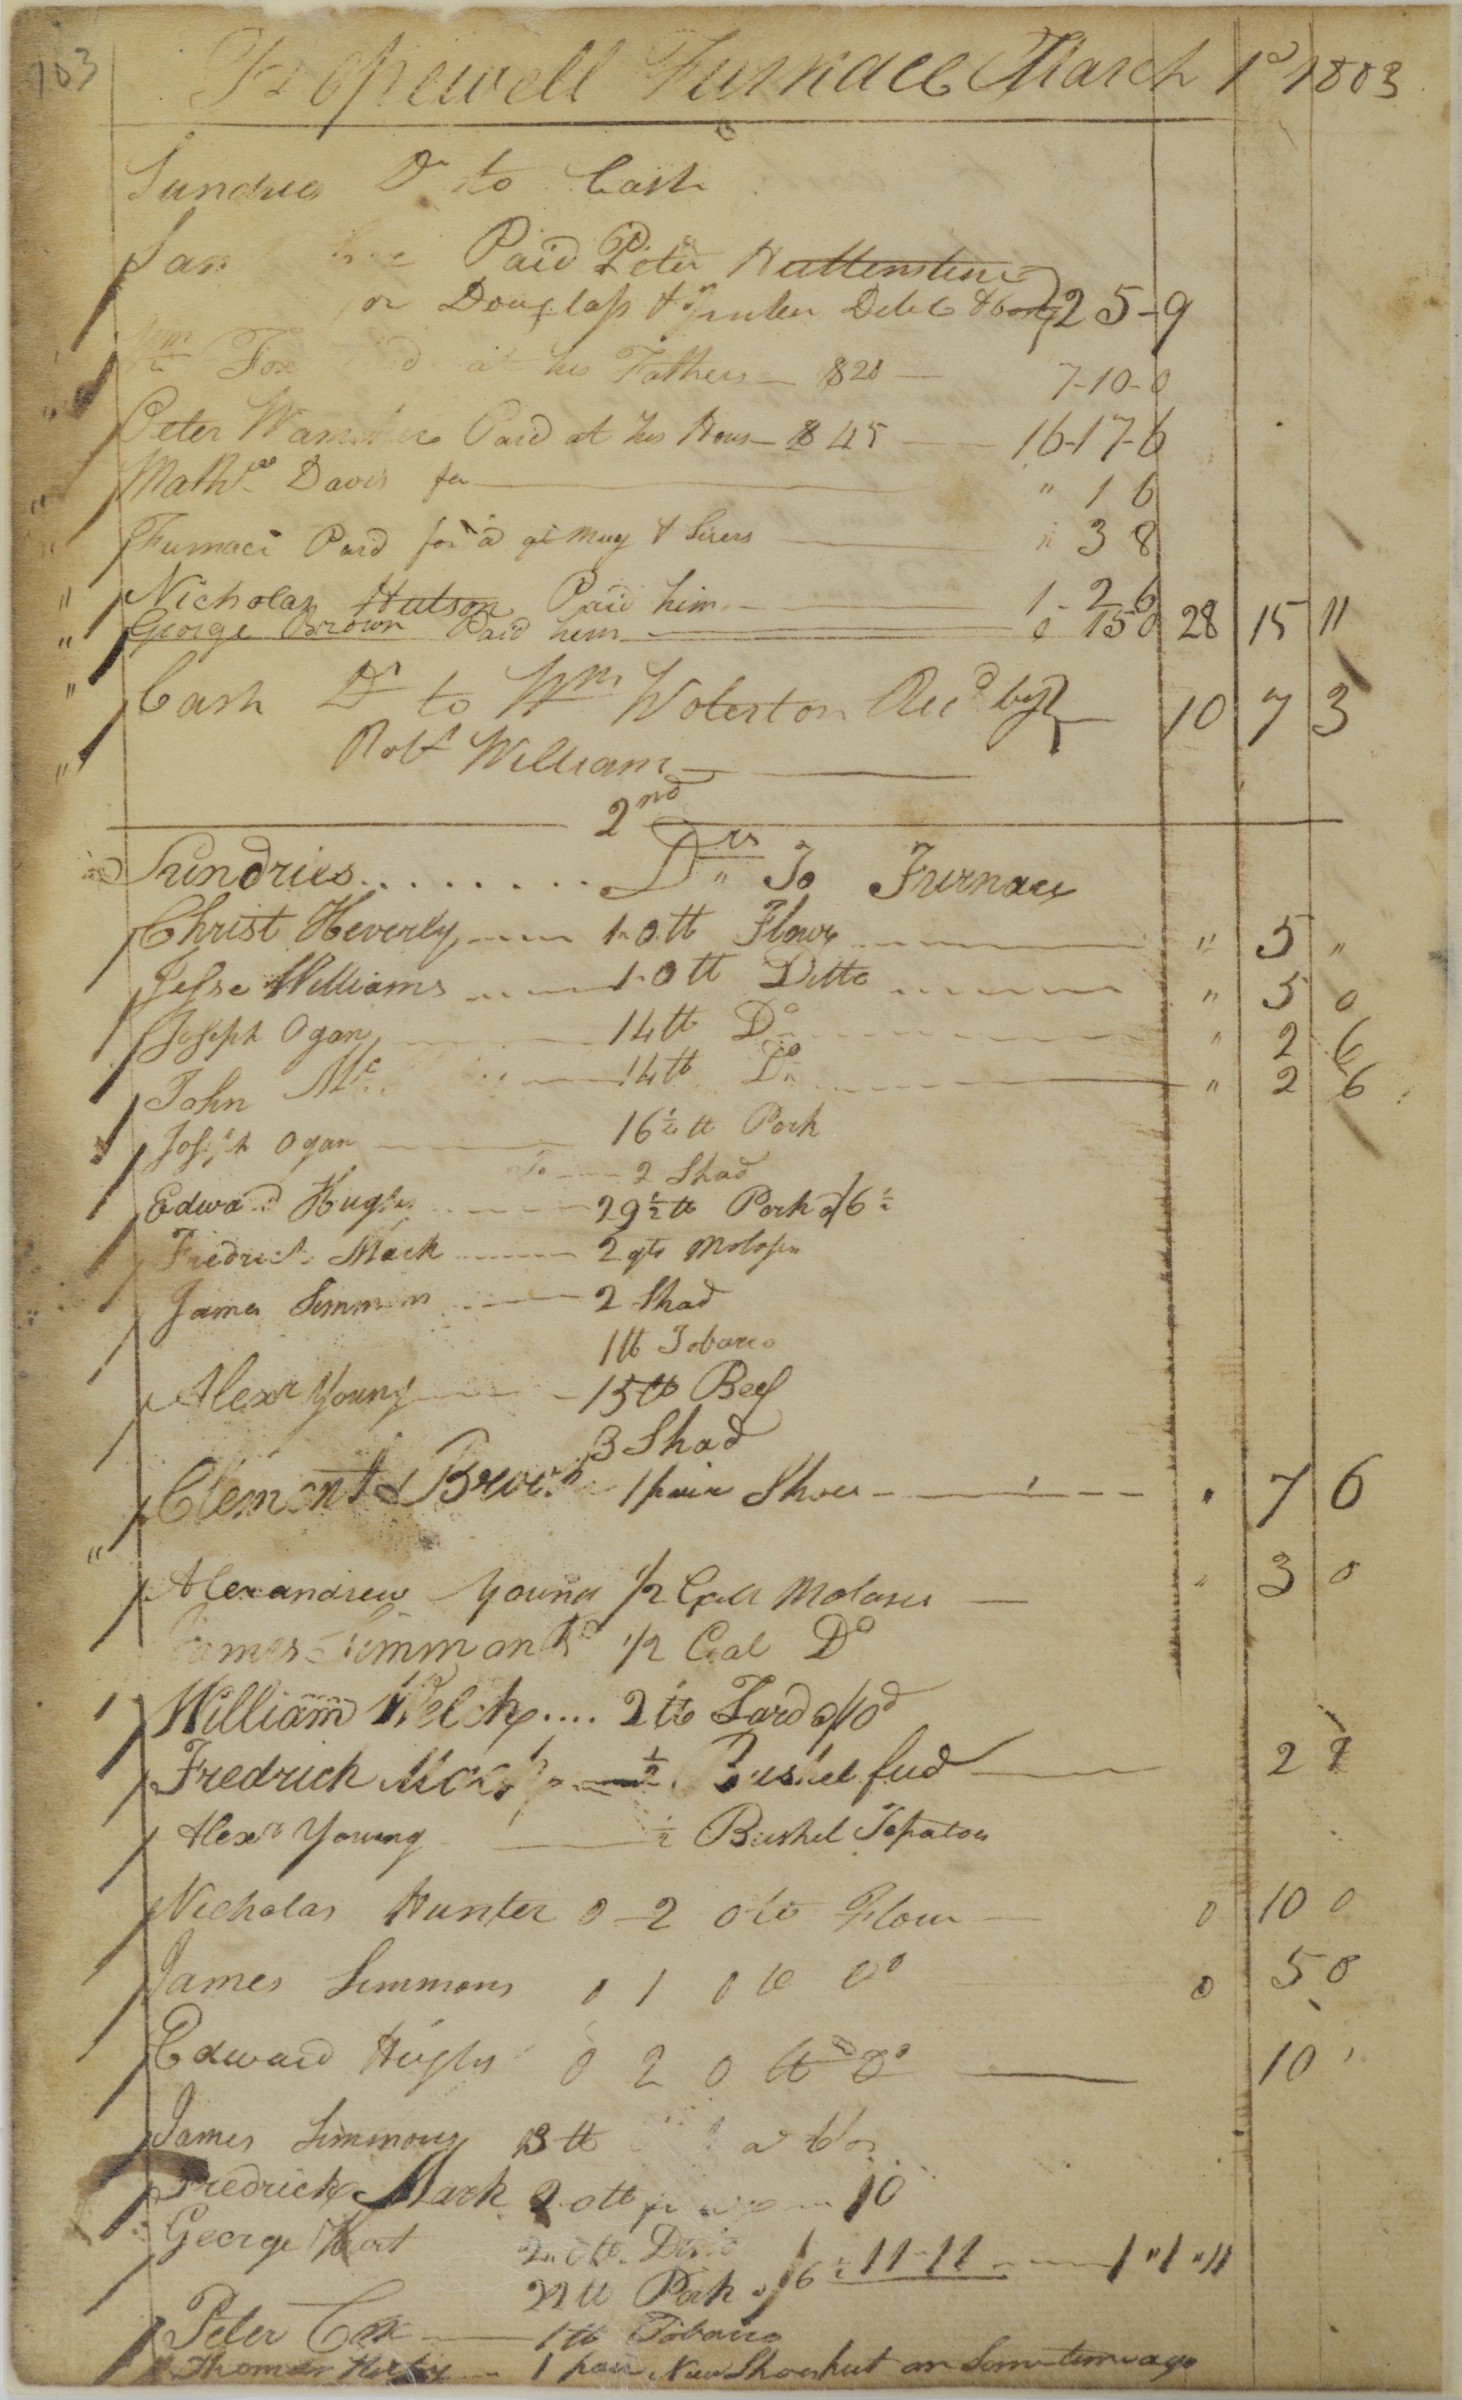 103
Hopewell Furnace March 1st 1803
Sundries Dr to Cash
Paid Peter Huttenstine
for Douglass & Debt & Cost 2 5-9
Wm Fox at his Fathers $20 7-10-0
Peter Paid at his Hous $45 16-17-6
Davis for " 1 6
Furnace Paid for a qt Mug & " 3 8
Nicholas Hutson Paid him 1-2-6
George Brown Paid him 0 15 0 28 15 11
Cash Dr to Wm Woterton Recd by 10 7 3
Robt Williams
2nd
Sundries Drs To Furnace
Christ Heverly 1-0 lb Flour " 5 "
Jesse Williams 1-0 lb Ditto " 5 0
Joseph Ogan 14 lb Do " 2 6
John Mc 14 lb Do " 2 6
Joseph Ogan 16½ lb Pork
To 2 Shad
Edward Hughs 29½ lb Pork @ /6½
Fredrick Mack 2 qts Molasses
James Simmons 2 Shad
1 lb Tobacco
Alexr Young 15 lb Beef
3 Shad
Clement Brown 1 pair Shoes " 7 6
Alexandrew Young 1/2 Gall Molases " 3 0
James Simmons 1/2 Gal Do
William Welch .... 2 lb Lard @ /10d
Fredrick Mack ½ Bushel fud 2
Alexr Young ½ Bushel Potatoes
Nicholas Hunter 0-2 0 lb Flour 0 10 0
James Simmons 0 1 0 lb Do 0 5 0
Edward Hughs 0 2 0 lb Do 10
James Simmons 13 lb
Fredrick Mack 2.0 lb 10
George Hart 2.0 lb Ditto
22 lb Pork @ /6½ 11-11 1"1"11
Peter Cox 1 lb Tobacco
Thomas 1 pair New Shoes some time ago